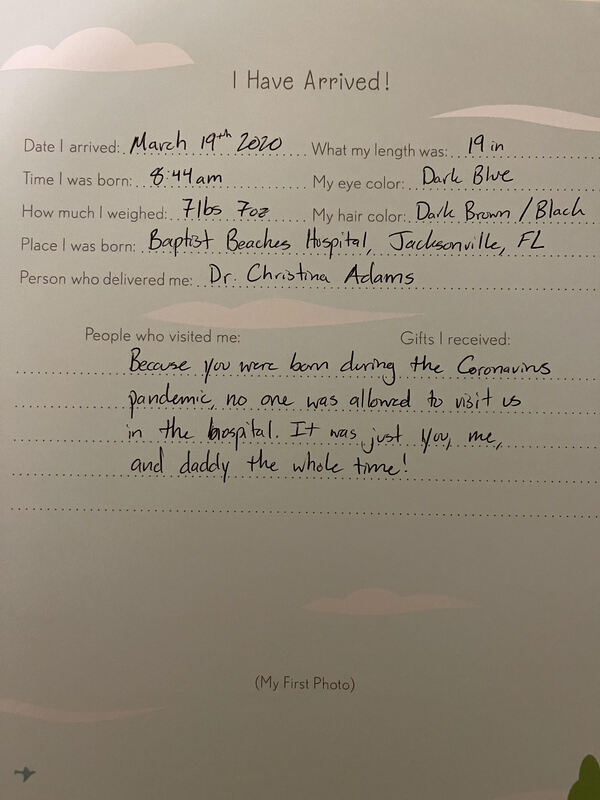 I Have Arrived!
Date I arrived: March 19th 2020 What my length was: 19 in
Time I was born: 8:44am My eye color: Dark Blue
How much I weighed: 7lbs 7oz My hair color: Dark Brown / Black
Place I was born: Baptist Beaches Hospital, Jacksonville, FL
Person who delivered me: Dr. Christina Adams
People who visited me: Gifts I received:
Because you were born during the Coronavirus
pandemic, no one was allowed to visit us
in the hospital. It was just you, me,
and daddy the whole time!
(My First Photo)